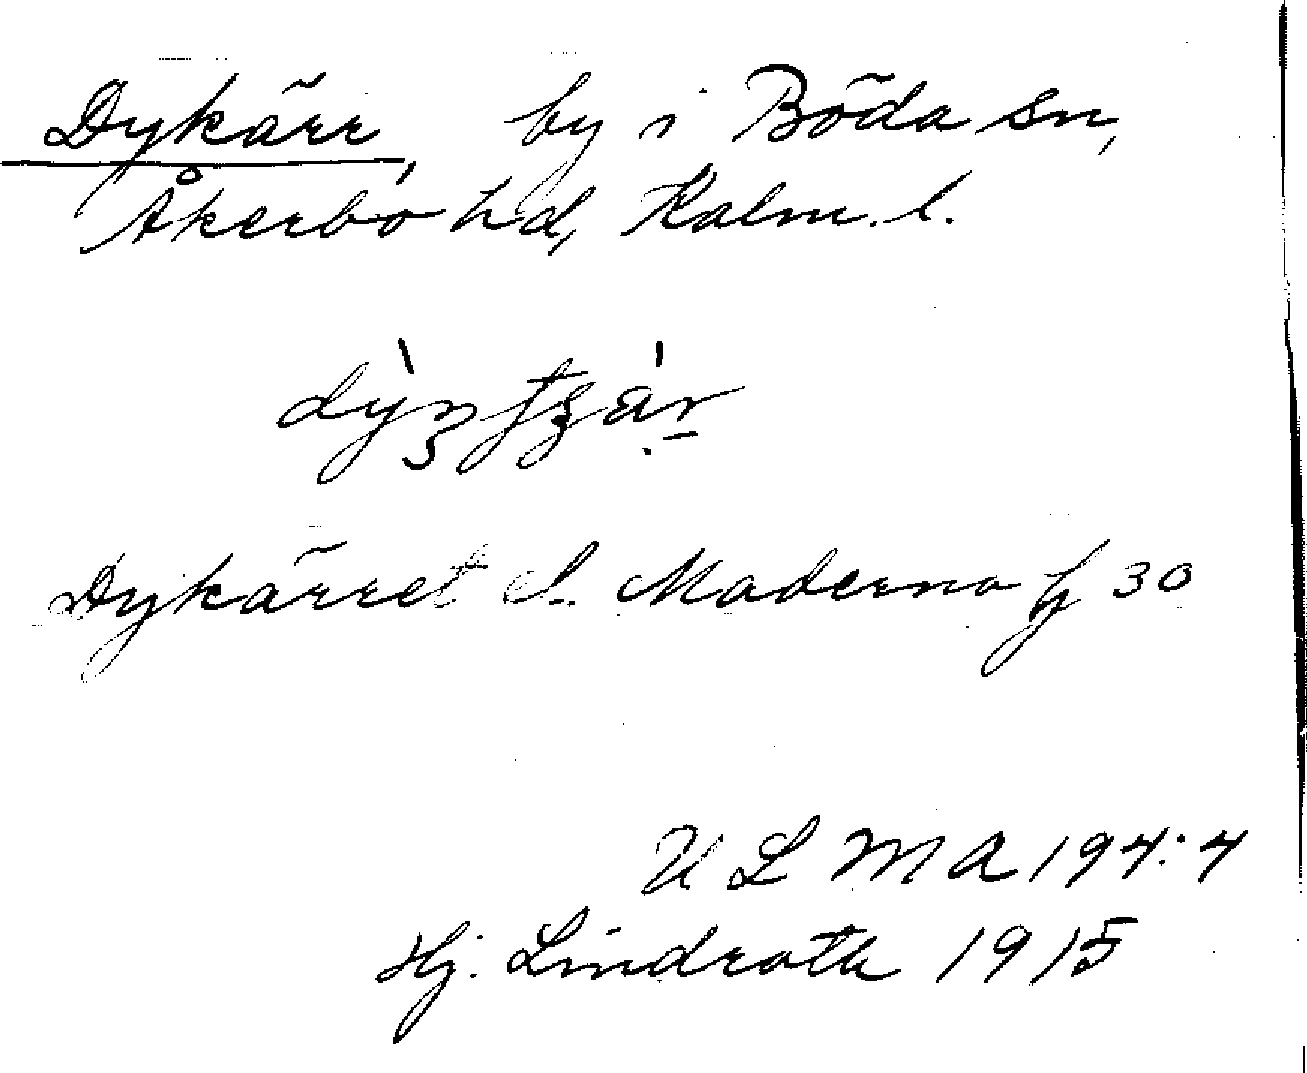 Dykärr, by i Böda sn,
Åkerbo hd, Kalm. l.
Dykärret l. Maderna 30
ULMA 194:4
Hj. Lindroth 1915